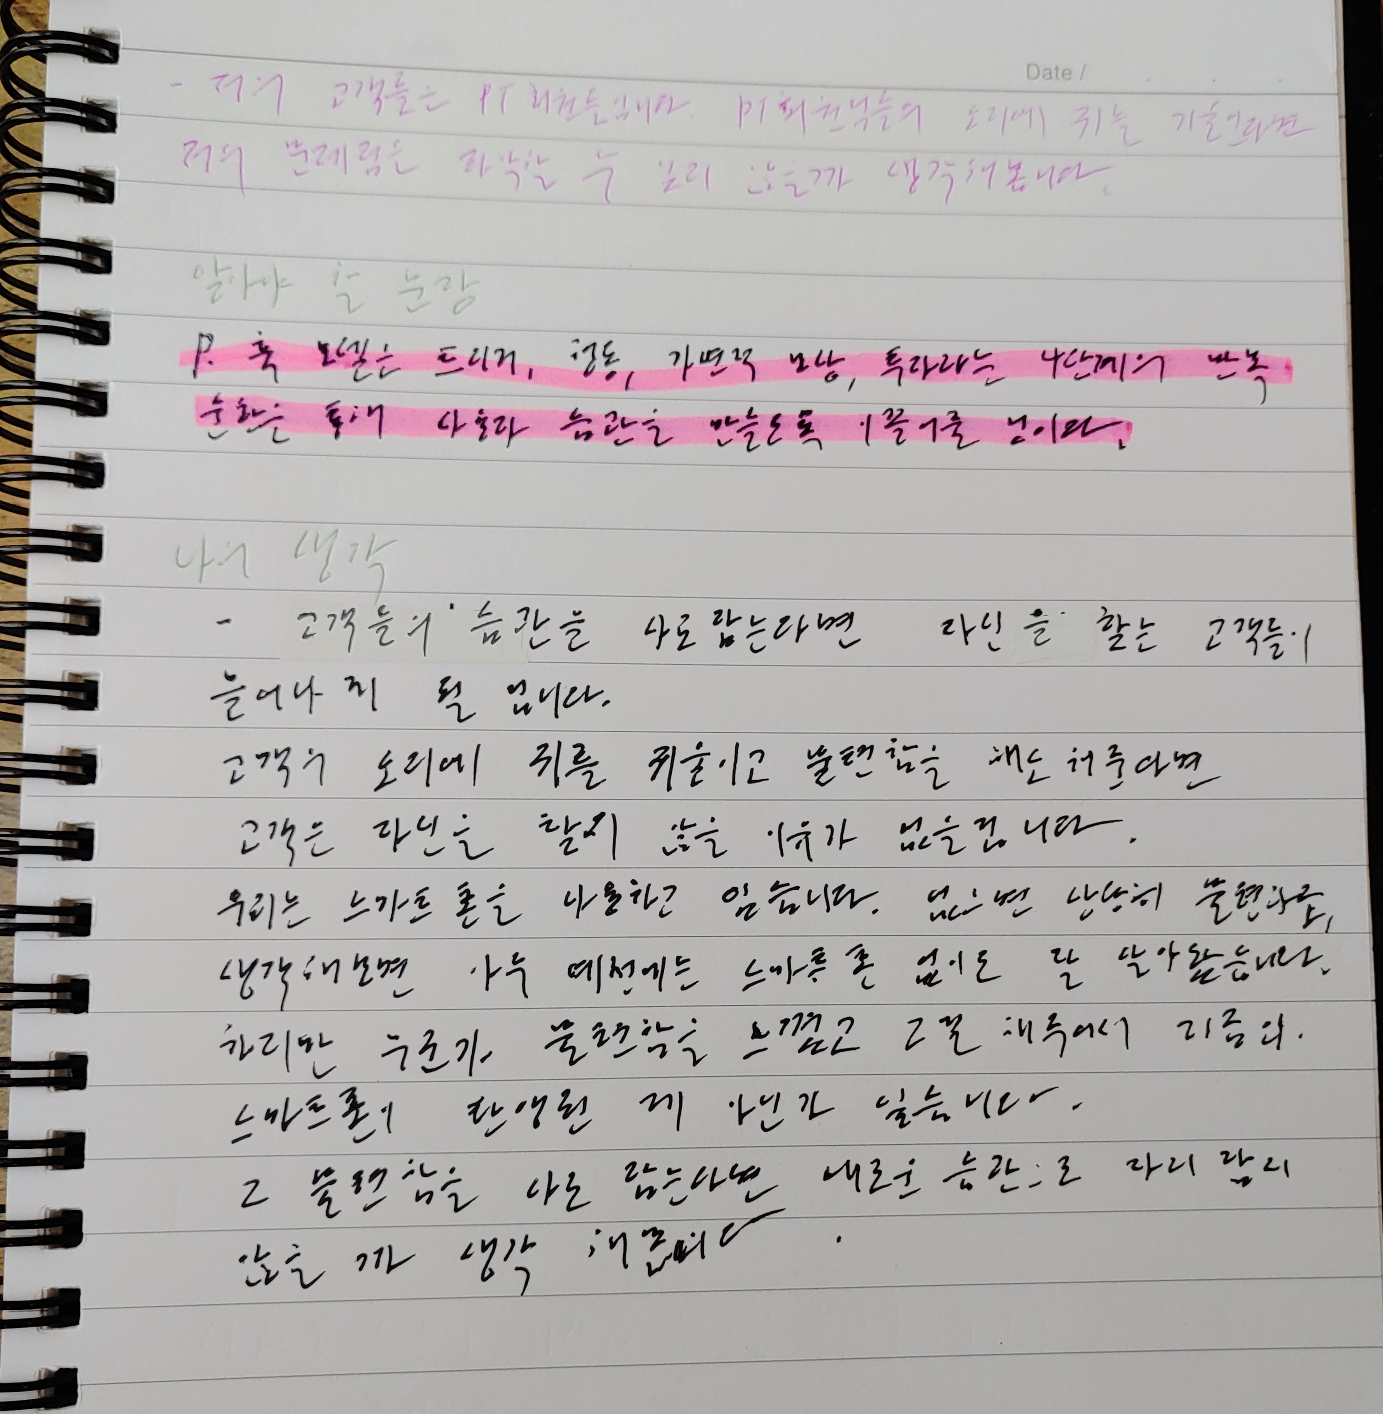 Date /
- 저의 고객들은 PT 회원들입니다. PT 회원님들의 소리에 귀를 기울이다면
저의 문제점을 파악할 수 있지 않을까 생각해봅니다.
알아야 할 문장
P. 훅 모델은 트리거, 행동, 가변적 보상, 투자라는 4단계의 반복
순환을 통해 사용자 습관을 만들도록 이끌어줄 것이다.
나의 생각
- 고객들의 습관을 사로잡는다면 자신을 찾는 고객들이
늘어나지 될 겁니다.
고객의 소리에 귀를 귀울이고 불편함을 해소해준다면
고객은 자신을 찾지 않을 이유가 없을겁니다.
우리는 스마트폰을 사용하고 있습니다. 없으면 상당히 불편하죠,
생각해보면 아주 예전에는 스마트폰 없이도 잘 살아왔습니다.
하지만 누군가 불편함을 느꼈고 그걸 채워서 지금의
스마트폰이 탄생된 게 아닌가 싶습니다.
그 불편함을 사로 잡는다면 새로운 습관으로 자리 잡지
않을까 생각 해봅니다.